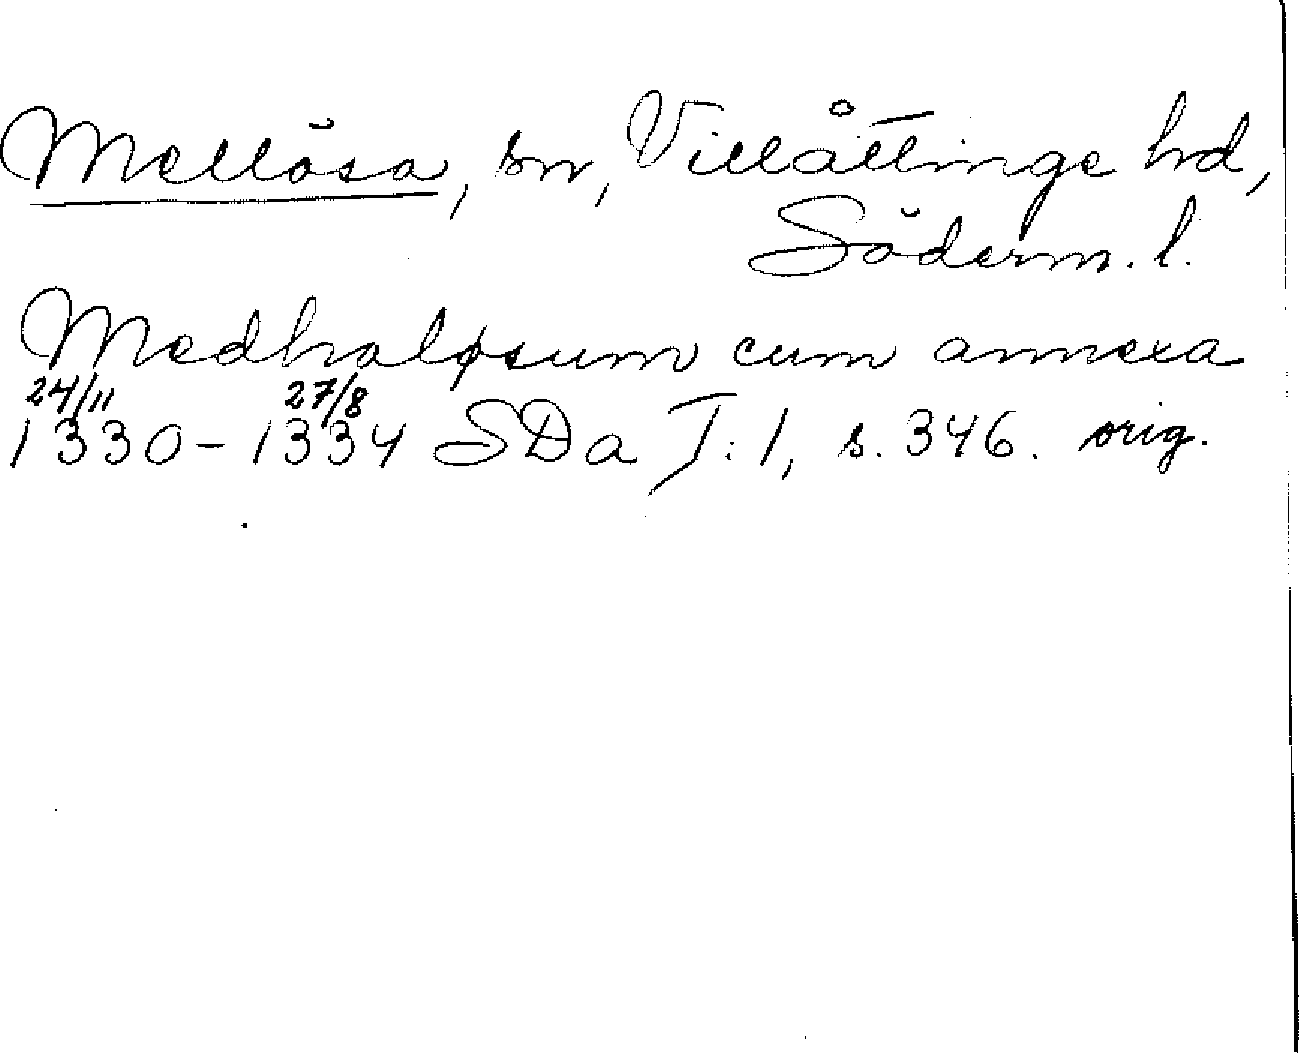 Mellösa, sn, Villåttinge hd,
Söderm. l.
Medhaløsum cum annexa
24/11 27/8
1330-1334 SDa I:1, s. 346. orig.